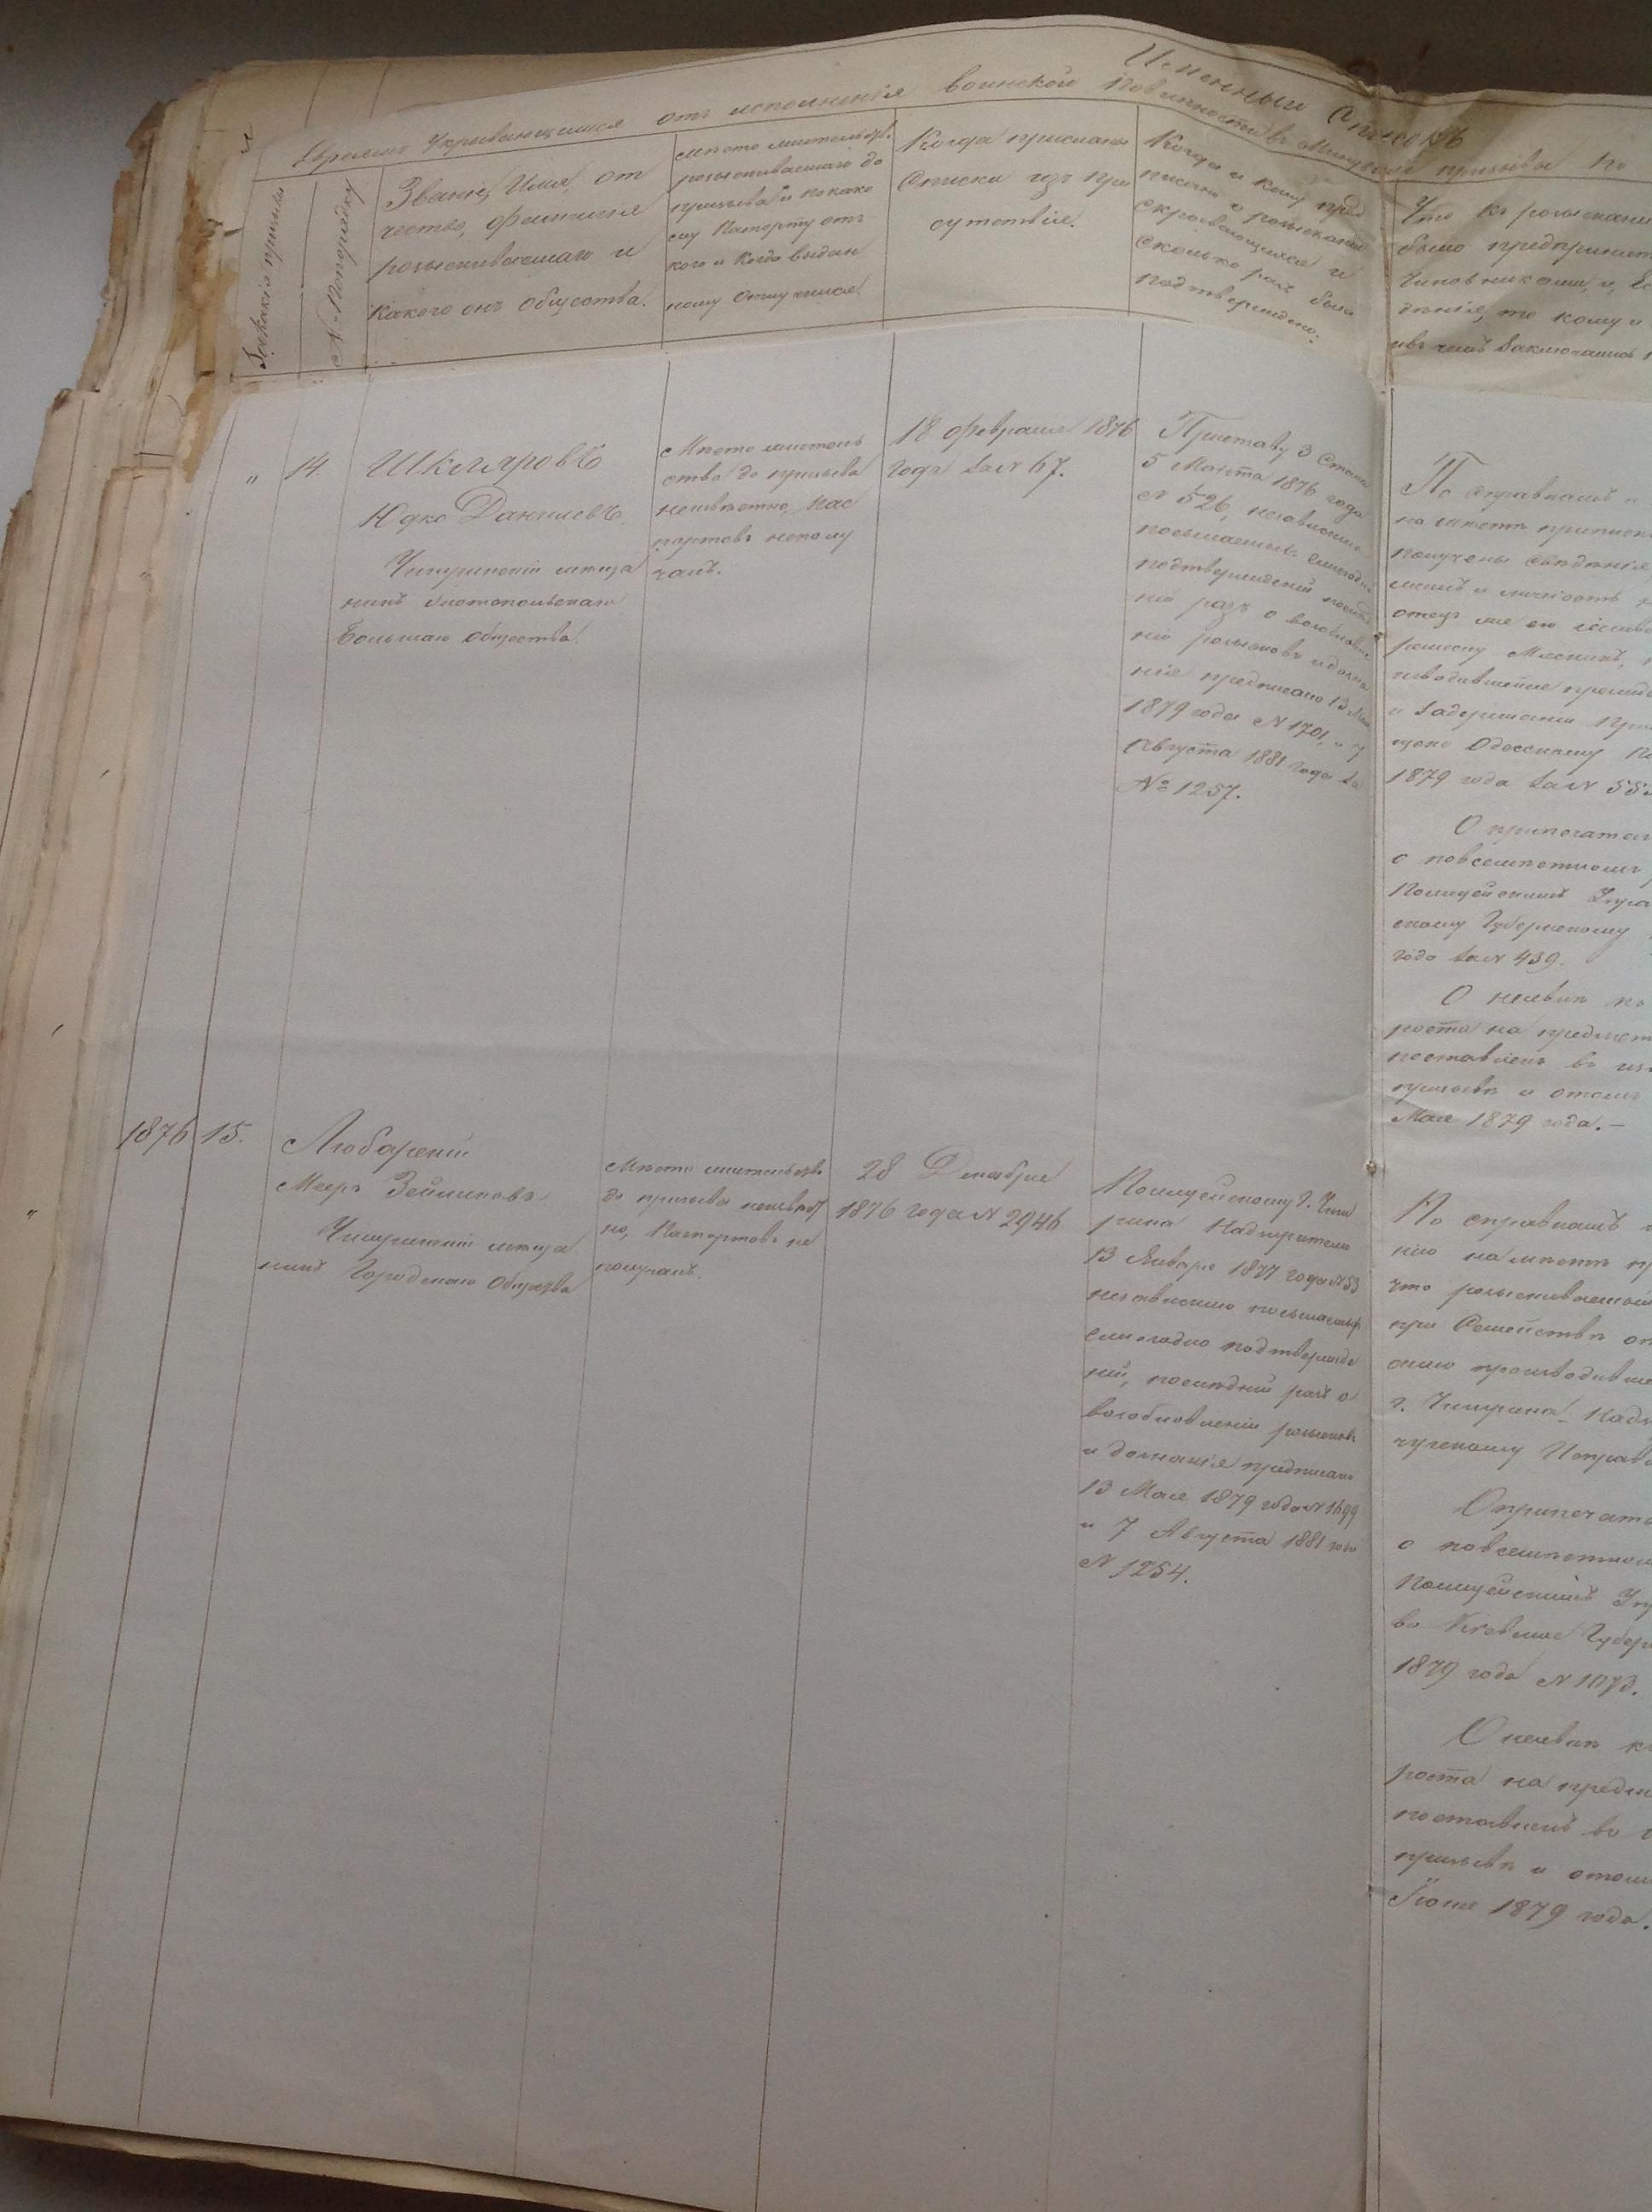 Именный Списокъ
Евреямъ Укрывающимся отъ исполненія воинской Повинности въ призывы по
Звание, Имя, от
чество, фамилія
розыскиваемаго и
Какого онъ общества.
Место жительст.
розыскиваемаго до
призыва и по како
му Паспорту отъ
кого и Когда выдан
ному отлучился
Когда присланы
Списки изъ При
сутствія.
Когда и кому пред
писано о розысканіи
скрывающихся и
Сколько разъ было
подтверждено.
Что къ розысканію
было предпринято
Чиновниками, и, Ес
то кому и
въ чемъ Заключались
№ Попорядку
"
14.
Шкляровъ
Юдко Данилевъ
Чигиринскій мѣща
нинъ Златопольскаго
Большаго общества.
Мѣсто житель
ства до призыва
неизвѣстно, пас
портовъ неполу
чалъ.
18 февраля 1876
года за № 67.
Приставу 3 Стана
5 Марта 1876 года
№ 526, независимо
посылаемыхъ ежегодно
подтвержденій послѣд
ній разъ о возобновле
ніи розысковъ и дозна
нія предписано 13 Мая
1879 года № 1701, и 7
Августа 1881 года за
№ 1257.
По справкамъ и
на мѣстѣ приписки
получены свѣдѣнія
отецъ же его
и задержаніи
Одесскому По
1879 года за № 555
О припечатан
о повсемѣстномъ
Полицейскимъ Упра
скому Губернскому
года за № 439.
О неявкѣ къ
роста на предмет
поставленъ въ из
призывъ и о томъ
Мая 1879 года. —
1876
15.
Любарскій
Мееръ Зейликовъ
Чигиринскій мѣща
нинъ Городскаго Общества
Мѣсто жительства
до призыва неизвѣст
но, Паспортовъ не
получалъ.
28 Декабря
1876 года № 2946
Полицейскому Г. Чиги
рина Надзирателю
13 Января 1877 года № 53
независимо посылаемыхъ
ежегодно подтвержде
ній, послѣдній разъ о
возобновленіи розысковъ
и дознанія предписано
13 Мая 1879 года № 1699
и 7 Августа 1881 года
№ 1254.
По справкамъ
нію на мѣстѣ пр
что розыскиваемый
при Семействѣ от
производивше
г. Чигирина Надз
чугскому Исправ
О припечата
о повсемѣстномъ
Полицейскимъ Упр
въ Кіевское Губер
1879 года № 1073.
О неявкѣ къ
роста на предм
поставленъ въ
призывѣ и о томъ
Іюня 1879 года.